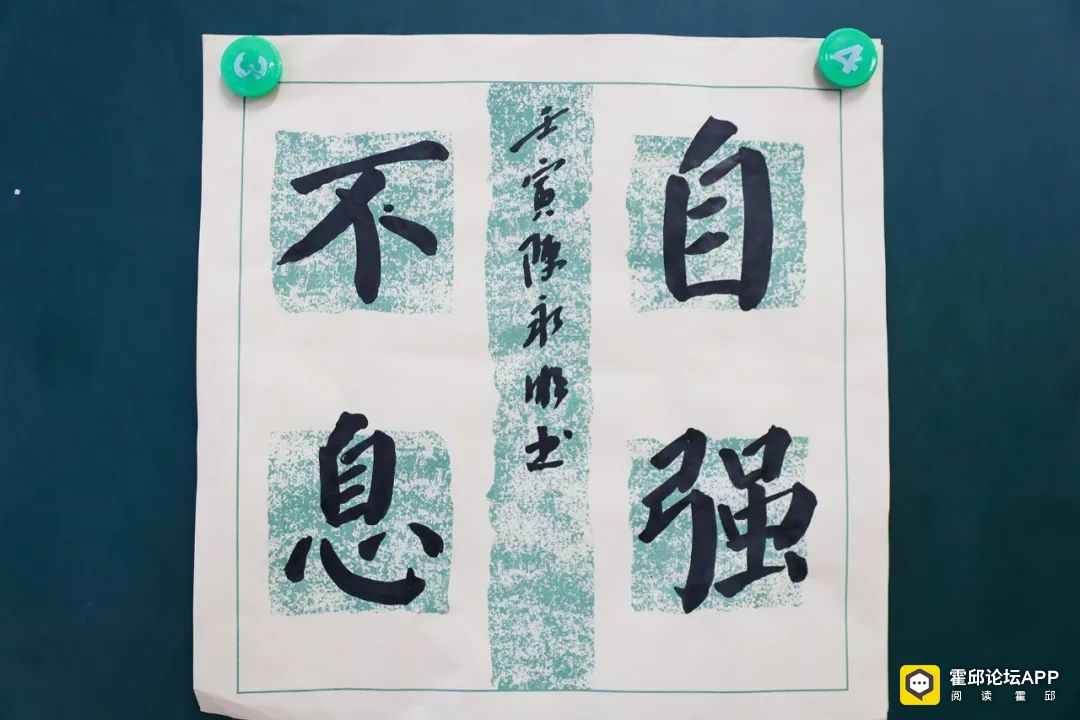 自强
不息
壬寅陈永明书
3
4
霍邱论坛APP
阅读霍邱